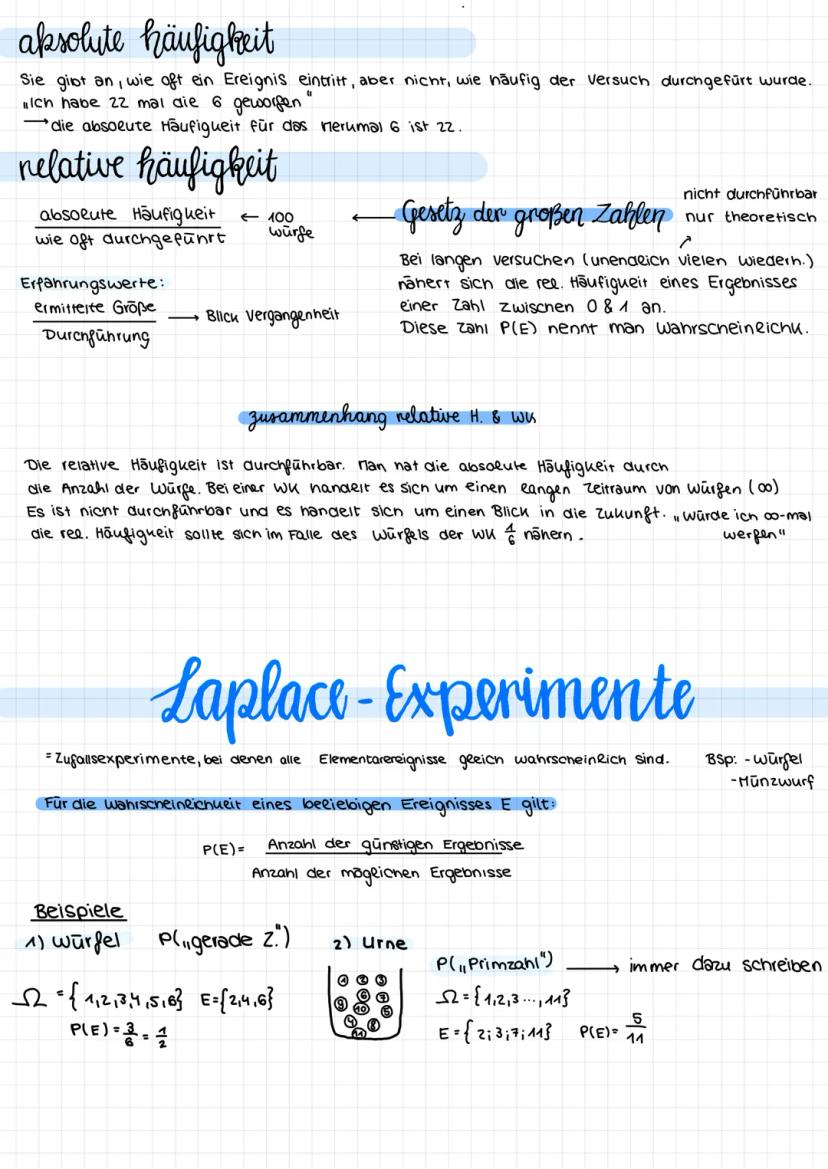 absolute häufigkeit
Sie gibt an, wie oft ein Ereignis eintritt, aber nicht, wie häufig der Versuch durchgefürt wurde.
„Ich habe 22 mal die 6 geworfen"
→ die absolute Häufigkeit für das Merkmal 6 ist 22.
relative häufigkeit
absolute Häufigkeit
wie oft durchgeführt
← 100 würfe
← Gesetz der großen Zahlen
nicht durchführbar
nur theoretisch
Bei langen versuchen (unendlich vielen wiederh.)
nähert sich die rel. Häufigkeit eines Ergebnisses
einer Zahl zwischen 0 & 1 an.
Diese Zahl P(E) nennt man Wahrscheinlichk.
Erfahrungswerte:
ermittelte Größe
Durchführung
→ Blick Vergangenheit
zusammenhang relative H. & WK
Die relative Häufigkeit ist durchführbar. Man hat die absolute Häufigkeit durch
die Anzahl der Würfe. Bei einer WK handelt es sich um einen langen Zeitraum von Würfen (∞)
Es ist nicht durchführbar und es handelt sich um einen Blick in die Zukunft. „würde ich ∞-mal
werfen"
die rel. Häufigkeit sollte sich im Falle des Würfels der WK 1/6 nähern.
Laplace-Experimente
= Zufallsexperimente, bei denen alle Elementarereignisse gleich wahrscheinlich sind.
BSP: - Würfel
- Münzwurf
Für die Wahrscheinlichkeit eines beliebigen Ereignisses E gilt:
P(E) = Anzahl der günstigen Ergebnisse
Anzahl der möglichen Ergebnisse
Beispiele
1) Würfel P(„gerade Z.")
Ω = {1,2,3,4,5,6} E={2,4,6}
P(E) = 3/6 = 1/2
2) Urne
1 2 3
6 7
9 10 5
4 8
11
P(„Primzahl") → immer dazu schreiben
Ω = {1,2,3...,11}
E = {2;3;7;11} P(E) = 5/11